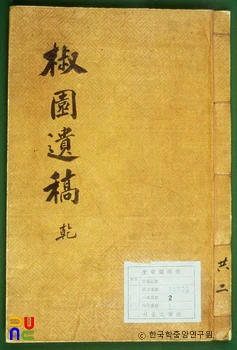 椒園遺稿 乾
共二
2
ⓒ 한국학중앙연구원